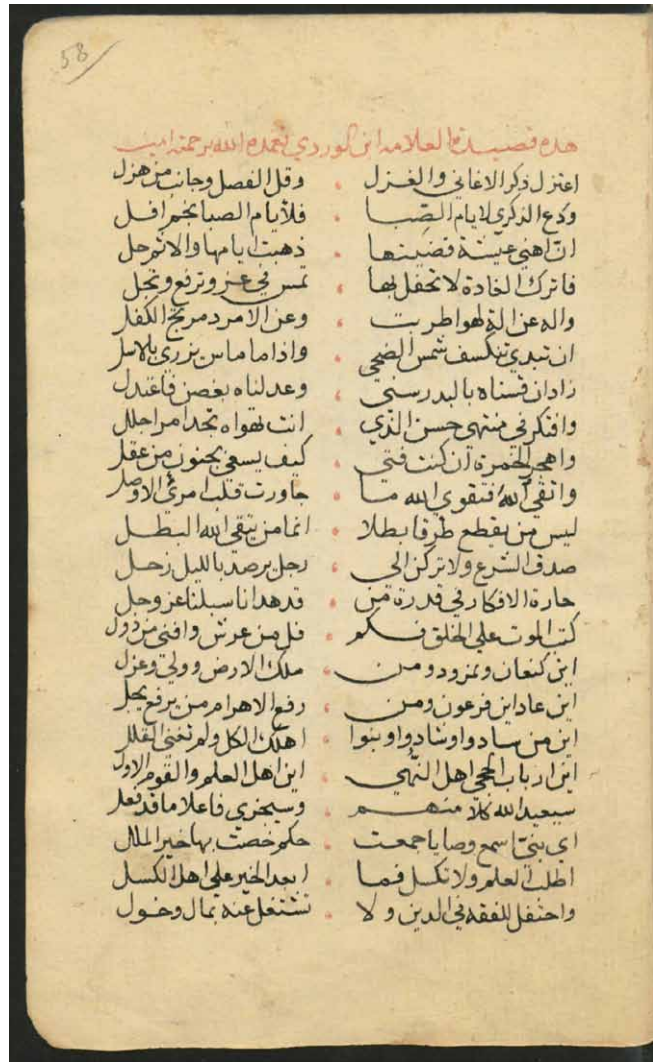 58
هذه قصيدة العلامه ابن الوردي تغمده الله برحمته امين
اعتزل ذكر الاغاني والغزل وقل الفصل وجانب من هزل
ودع الذكري لايام الصِبا فلأيام الصبا نجم افل
ان اهني عيشة قضيتها ذهبت ايامها والاثم حل
فاترك الغادة لا تحفل بها تمس في عز وترفع وتجل
واله عن الة لهو اطربت وعن الامرد مرتج الكفل
ان تبدي تنكسف شمس الضحي واذا ما ماس يزري بالاسل
زادان قسناه بالبدر سني وعدلناه بغصن فاعتدل
وافتكر في منتهى حسن الذي انت تهواه تجد امرا جلل
واهجر الخمرة ان كنت فتي كيف يسعي بجنون من عقل
واتقي الله فتقوي الله ما جاورت قلب امرئ الا وصل
ليس من يقطع طرقا بطلا انما من يتقي الله البطل
صدق الشرع ولا تركن الى رجل يرصد بالليل زحل
حارة الافكار في قدرة من قد هدانا سبلنا عز وجل
كتب الموت علي الخلق فكم فل من عرش وافني من دول
اين كنعان ونمزود ومن ملك الارض وولي وعزل
اين عاد اين فرعون ومن رفع الاهرام من يرفع يجل
اين من سادوا وشادوا وبنوا اهلك الكل ولم تغني القلل
اين ارباب الحجي اهل النُهي اين اهل العلم والقوم الاول
سيعيد الله كلا منهم وسيجزي فاعلا ما قد فعل
اي بنيّ اسمع وصايا جمعت حكم خصت بها خير الملل
اطلب العلم ولا تكسل فما ابعد الخير علي اهل الكسل
واحتفل للفقه في الدين ولا تشتغل عنه بمال وخول